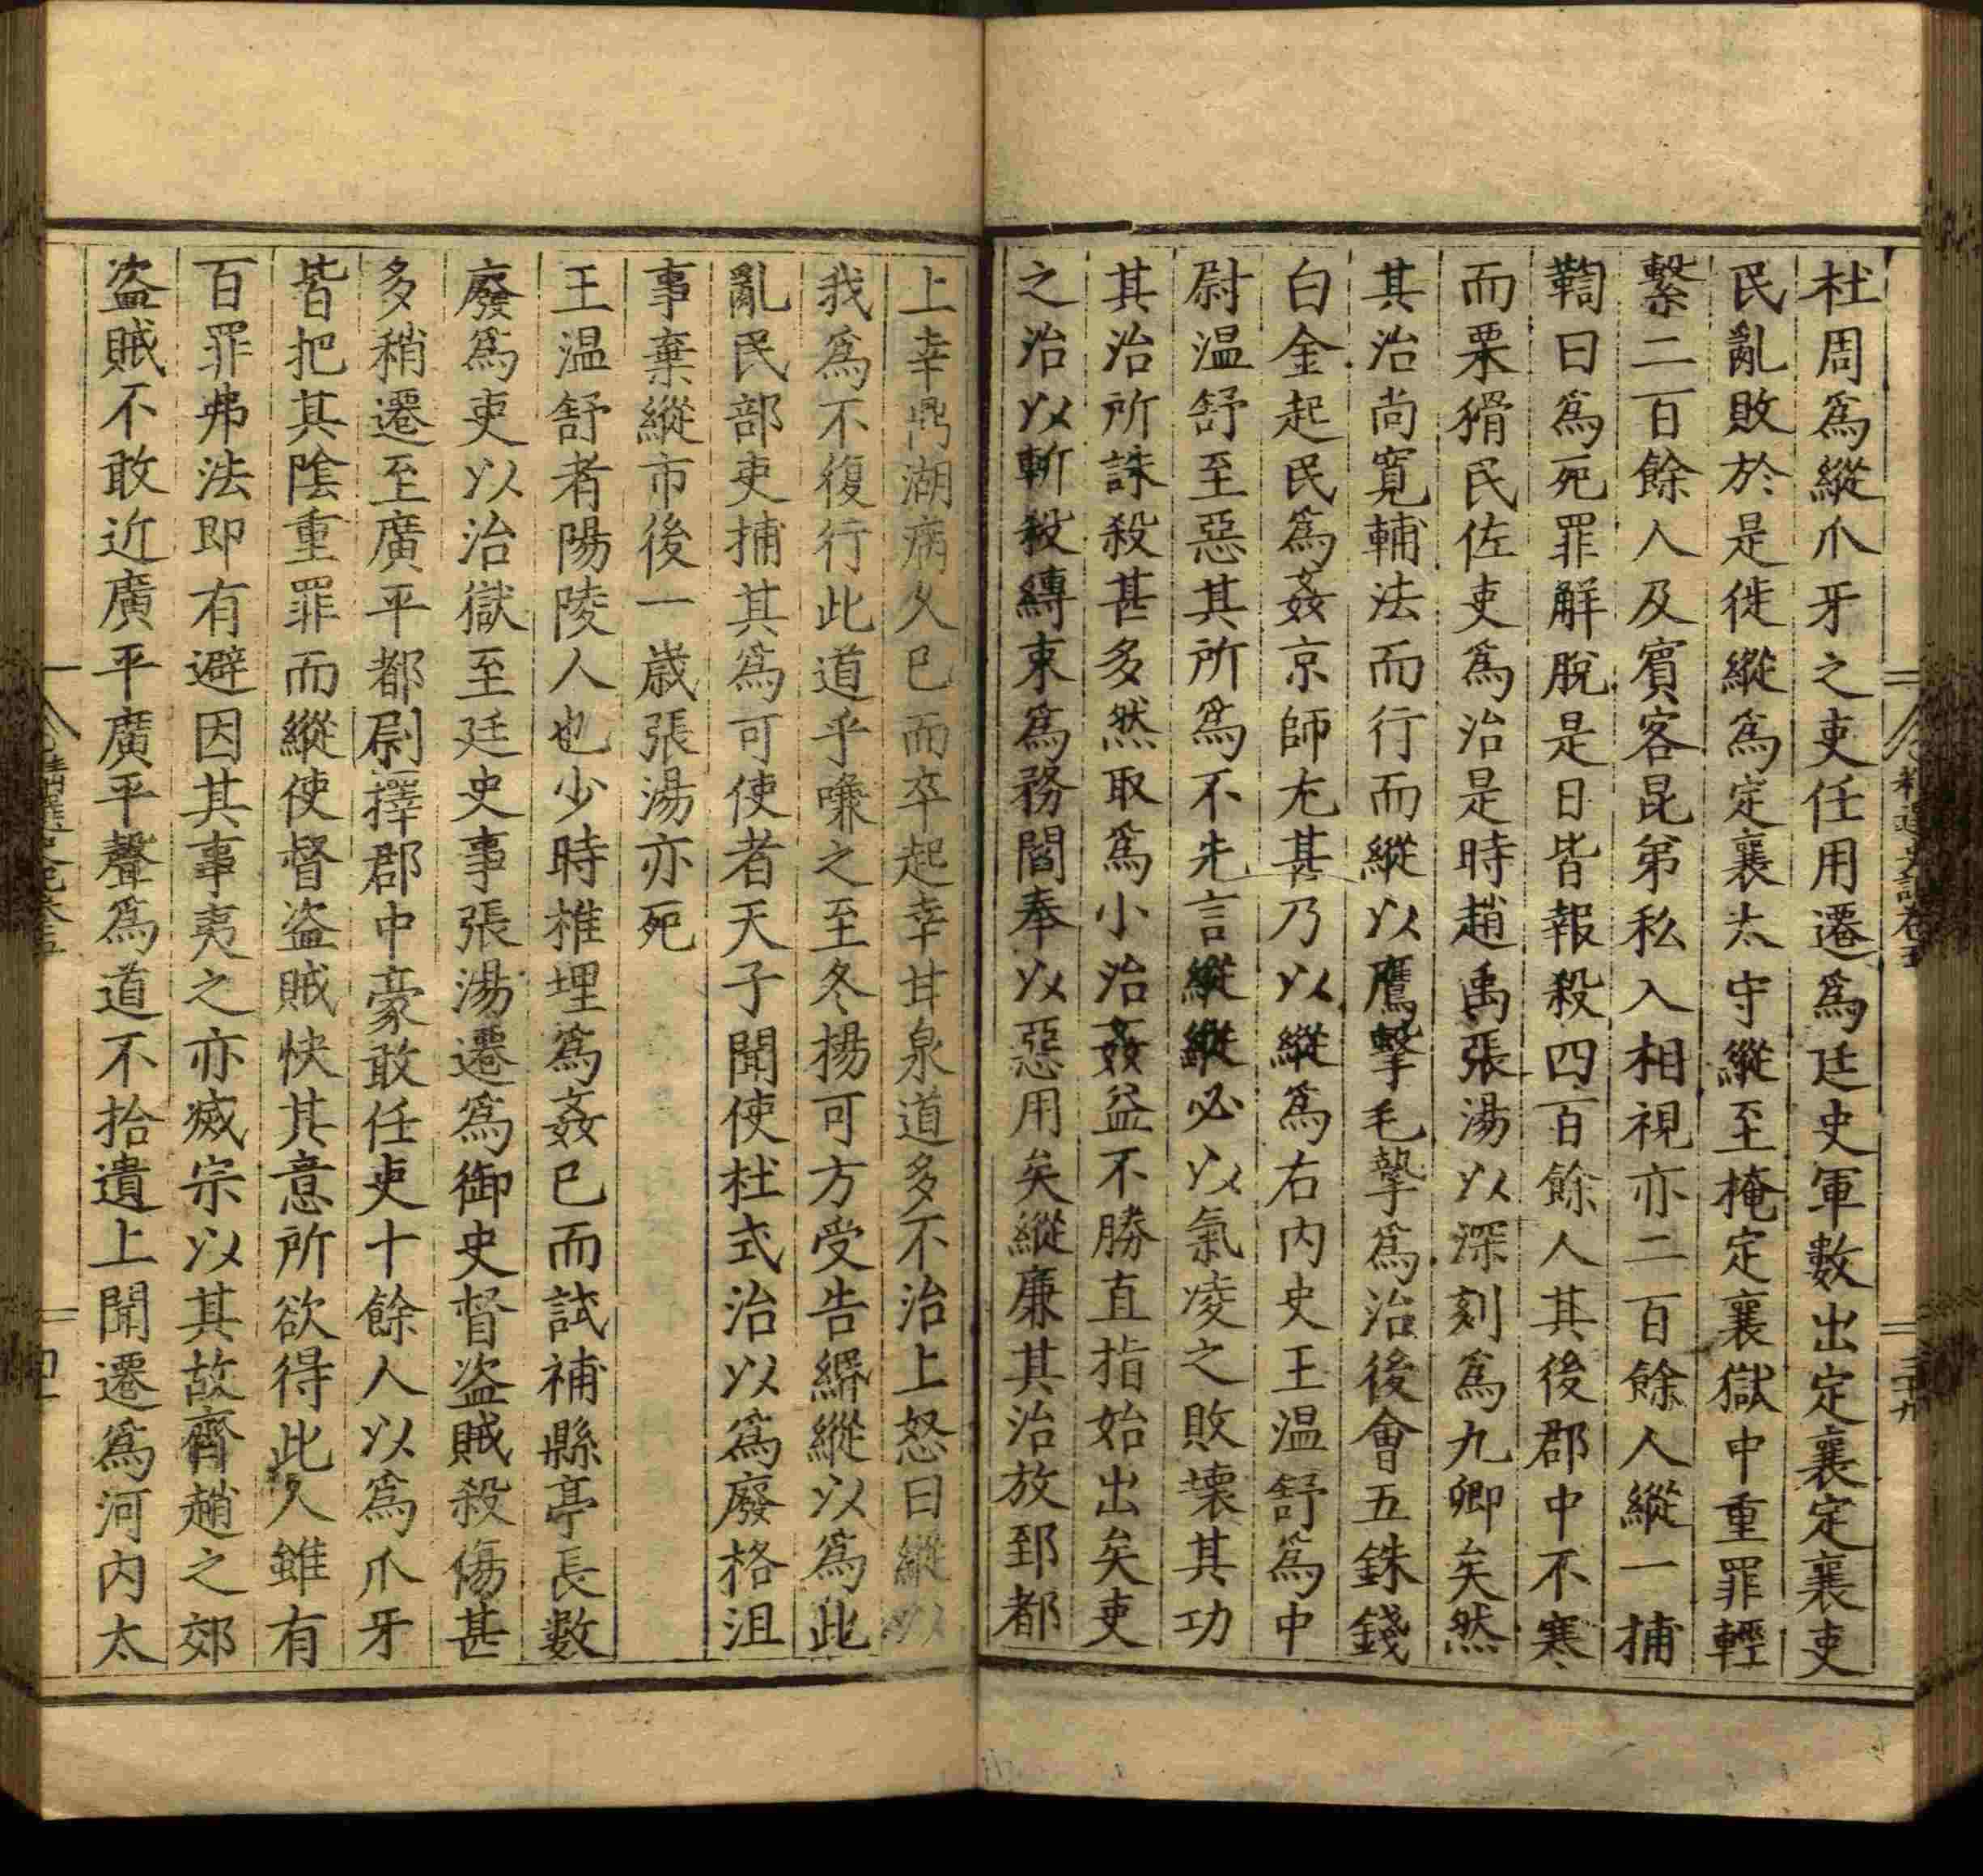 杜周爲縱爪牙之吏任用遷爲廷史軍數出定襄定襄吏
民亂敗於是徙縱爲定襄太守縱至掩定襄獄中重罪輕
繫二百餘人及賓客昆弟私入相視亦二百餘人縱一捕
鞫曰爲死罪解脫是日皆報殺四百餘人其後郡中不寒
而栗猾民佐吏爲治是時趙禹張湯以深刻爲九卿矣然
其治尚寬輔法而行而縱以鷹擊毛摯爲治後會五銖錢
白金起民爲姦京師尤甚乃以縱爲右內史王温舒爲中
尉温舒至惡其所爲不先言縱縱必以氣凌之敗壞其功
其治所誅殺甚多然取爲小治姦益不勝直指始出矣吏
之治以斬殺縛束爲務閻奉以惡用矣縱廉其治放郅都
上幸鼎湖病久已而卒起幸甘泉道多不治上怒曰縱以
我爲不復行此道乎嗛之至冬楊可方受告緡縱以爲此
亂民部吏捕其爲可使者天子聞使杜式治以爲廢格沮
事棄縱市後一歲張湯亦死
王温舒者陽陵人也少時椎埋爲姦已而試補縣亭長數
廢爲吏以治獄至廷史事張湯遷爲御史督盗賊殺傷甚
多稍遷至廣平都尉擇郡中豪敢任吏十餘人以爲爪牙
皆把其隂重罪而縱使督盗賊快其意所欲得此人雖有
百罪弗法即有避因其事夷之亦滅宗以其故齊趙之郊
盗賊不敢近廣平廣平聲爲道不拾遺上聞遷爲河內太